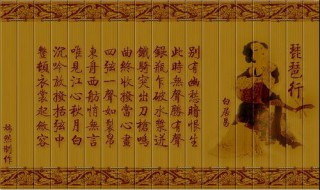 琵琶行
白居易
別有幽愁暗恨生
此時無聲勝有聲
銀瓶乍破水漿迸
鐵騎突出刀槍鳴
曲終收撥當心畫
四弦一聲如裂帛
東舟西舫悄無言
唯見江心秋月白
沉吟放撥插弦中
整頓衣裳起斂容
制作